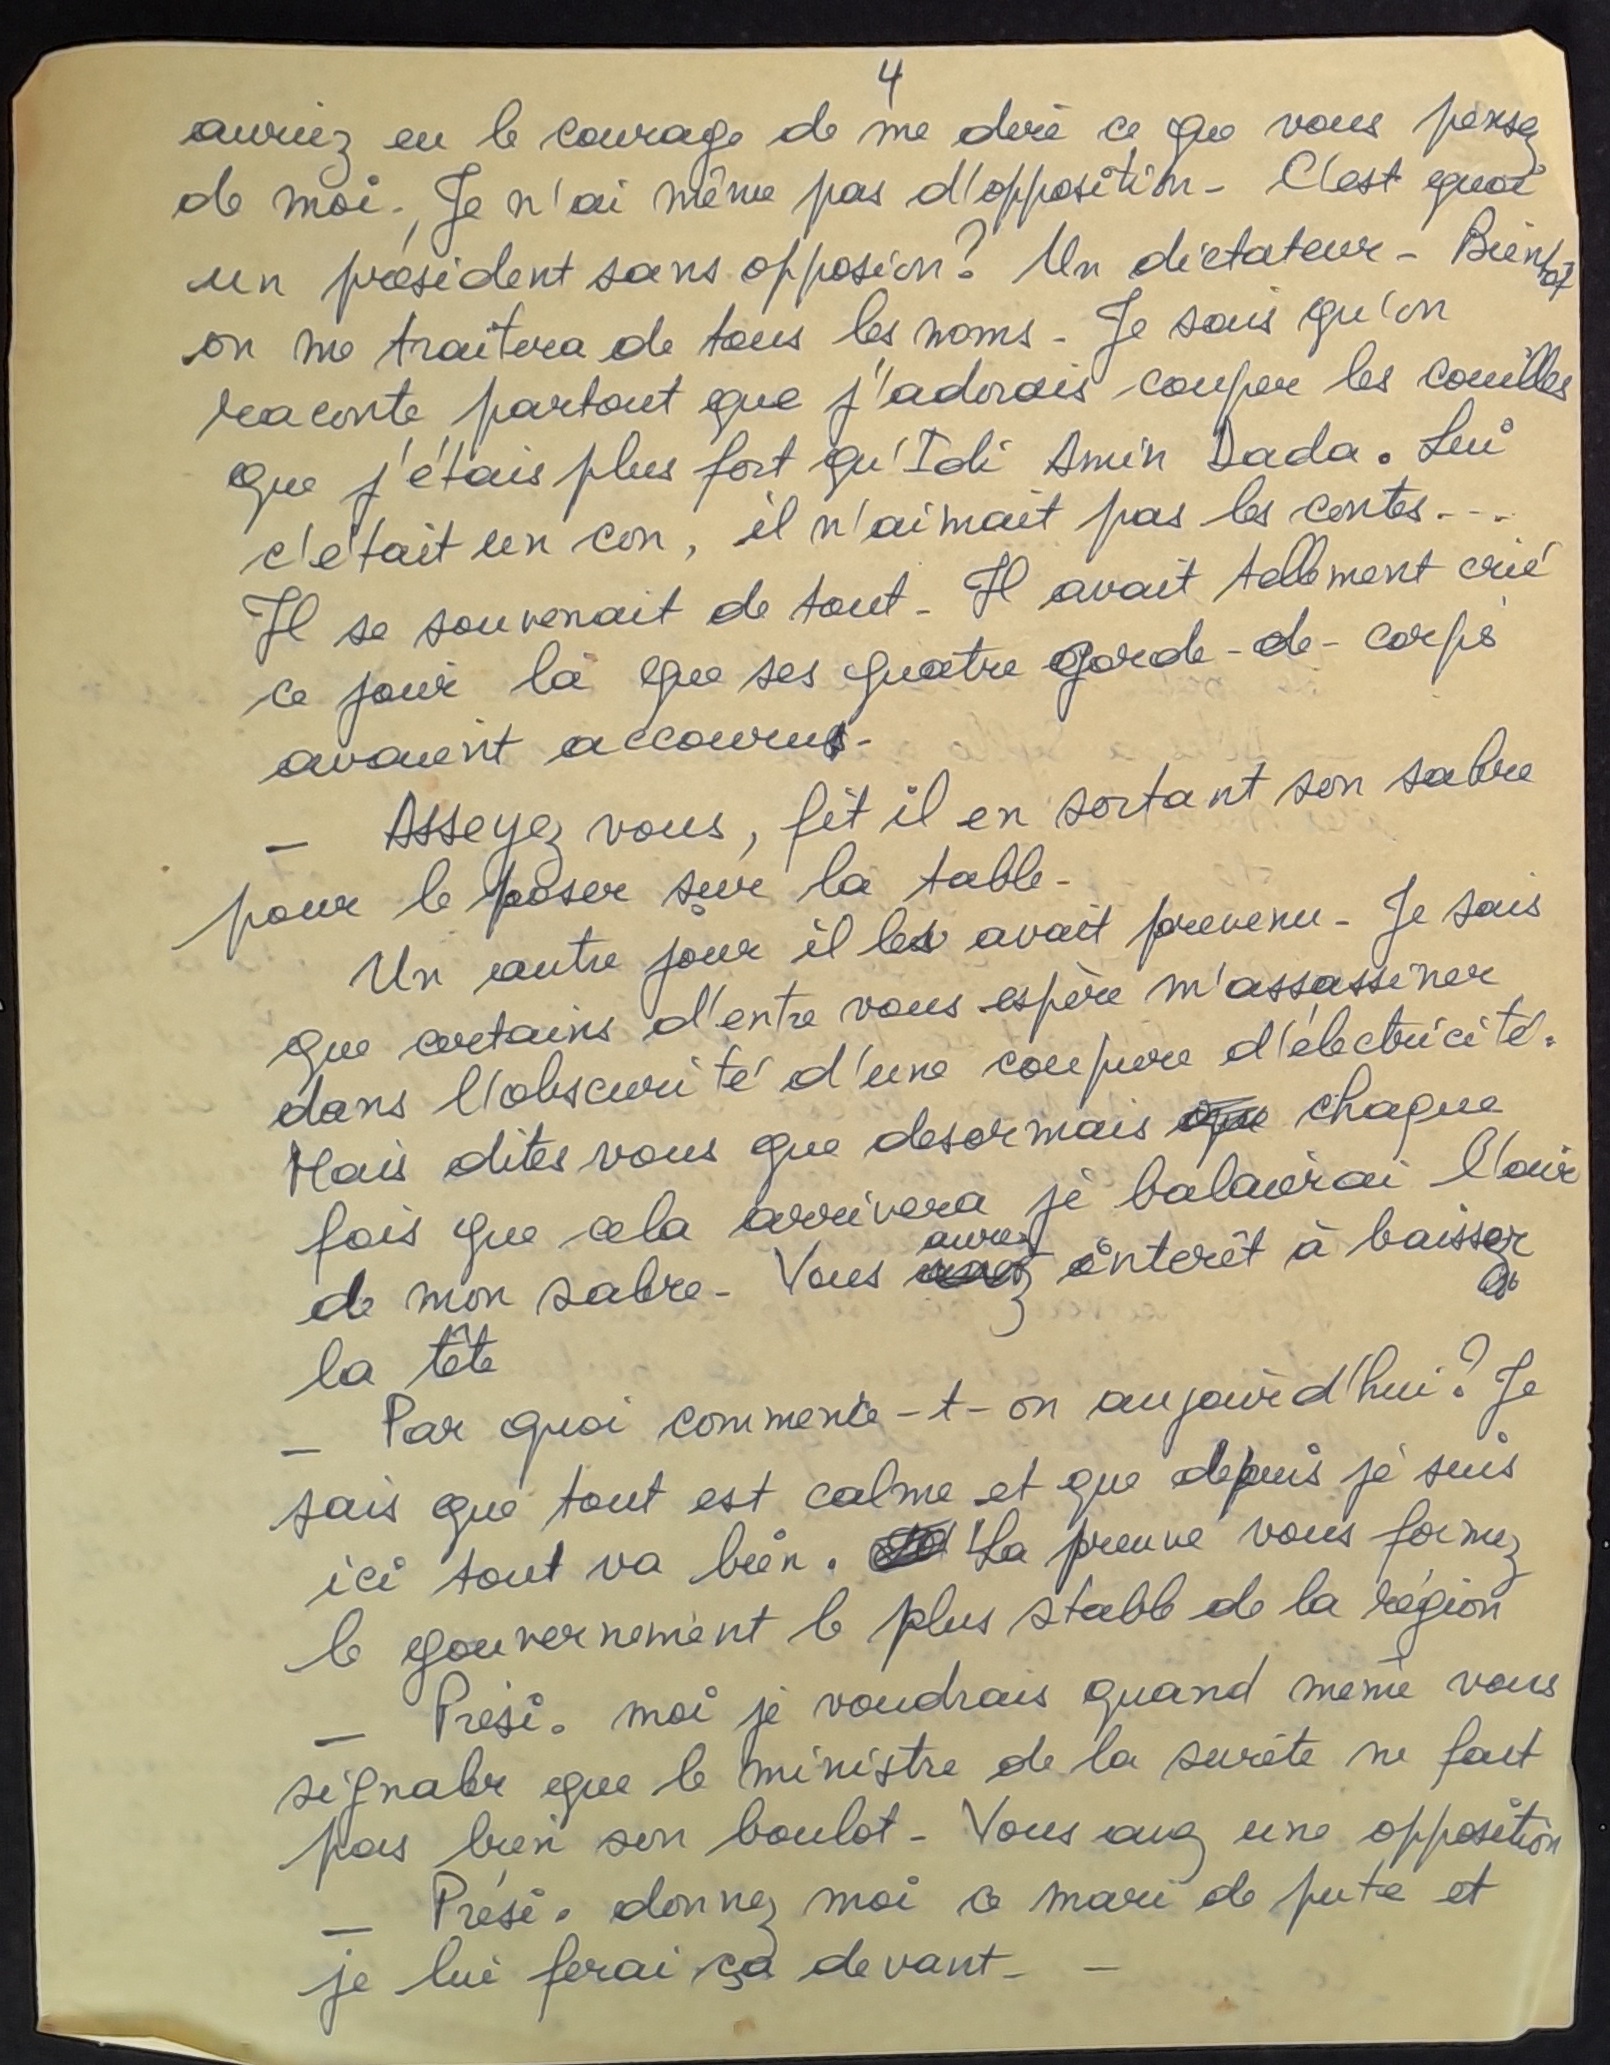 4
auriez eu le courage de me dire ce que vous pensez
de moi. Je n'ai même pas d'opposition - C'est quoi
un président sans opposion? Un dictateur - Bientôt
on me traitera de tous les noms - Je sais qu'on
raconte partout que j'adorais couper les couilles
que j'étais plus fort qu'Idi Amin Dada. Lui
c'était un con, il n'aimait pas les contes...
Il se souvenait de tout - Il avait tellement crié
ce jour là que ses quatre garde-de-corps
avaient accourus -
_ Asseyez vous, fit il en sortant son sabre
pour le poser sur la table -
Un autre jour il les avait prevenu - Je sais
que certains d'entre vous espère m'assassiner
dans l'obscurité d'une coupure d'électricité.
Mais dites vous que desormais que chaque
fois que cela arrivera je balaierai l'air
de mon sabre - Vous aurez intérêt à baisser
la tête
_ Par quoi commence-t-on aujourd'hui? Je
sais que tout est calme et que depuis je suis
ici tout va bien. La preuve vous formez
le gouvernement le plus stable de la région
_ Prési. moi je voudrais quand même vous
signaler que le ministre de la sureté ne fait
pas bien son boulot - Vous avez une opposition
_ Prési. donnez moi ce mari de pute et
je lui ferai ça devant - -